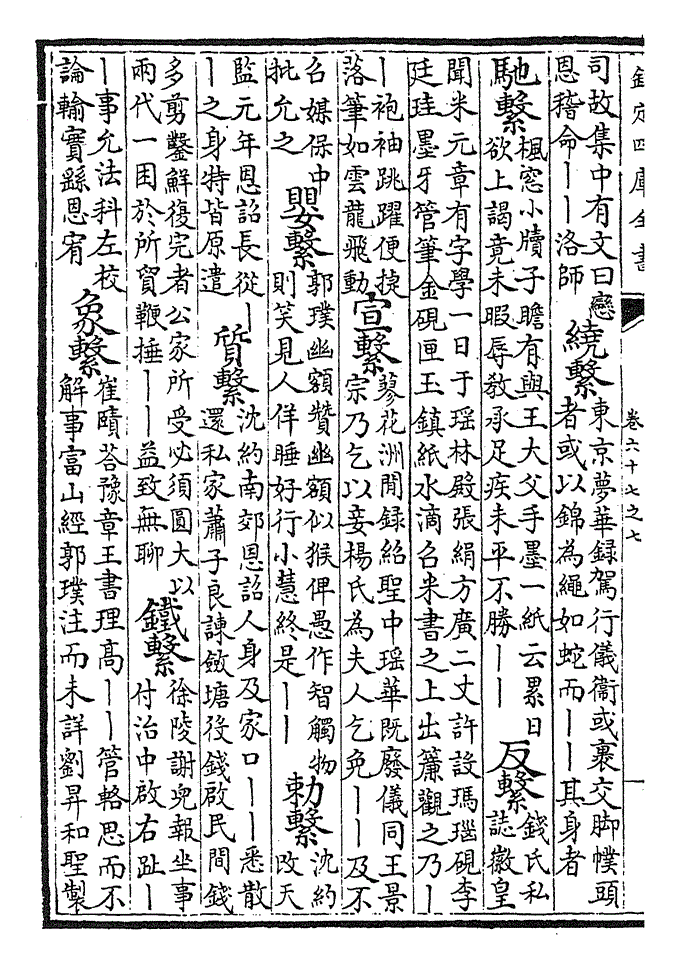 欽定四庫全書
卷六十七之七
司故集中有文曰戀
恩稽命丨丨洛師
繞繫
東京夢華録駕行儀衞或裹交脚幞頭
者或以錦為繩如蛇而丨丨其身者
馳繫
楓窓小牘子瞻有與王大父手墨一紙云累日
欲上謁竟未暇辱教承足疾未平不勝丨丨
反繫
錢氏私
誌徽皇
聞米元章有字學一日于瑶林殿張絹方廣二丈許設瑪瑙硯李
廷珪墨牙管筆金硯匣玉鎮紙水滴召米書之上出簾觀之乃丨
丨袍袖跳躍便捷
落筆如雲龍飛動
宣繫
蓼花洲閒録紹聖中瑶華既廢儀同王景
宗乃乞以妾楊氏為夫人乞免丨丨及不
召媒保中
批允之
嬰繫
郭璞幽頞贊幽頞似猴俾愚作智觸物
則笑見人佯睡好行小慧終是丨丨
勅繫
沈約
改天
監元年恩詔長從丨
丨之身特皆原遣
質繫
沈約南郊恩詔人身及家口丨丨悉散
還私家蕭子良諫斂塘役錢啟民間錢
多剪鑿鮮復完者公家所受必須圓大以
兩代一困於所貿鞭捶丨丨益致無聊
鐵繫
徐陵謝兒報坐事
付治中啟右趾丨
丨事允法科左校
論輸實繇恩宥
象繫
崔賾荅豫章王書理高丨丨管輅思而不
解事富山經郭璞注而未詳劉昇和聖製